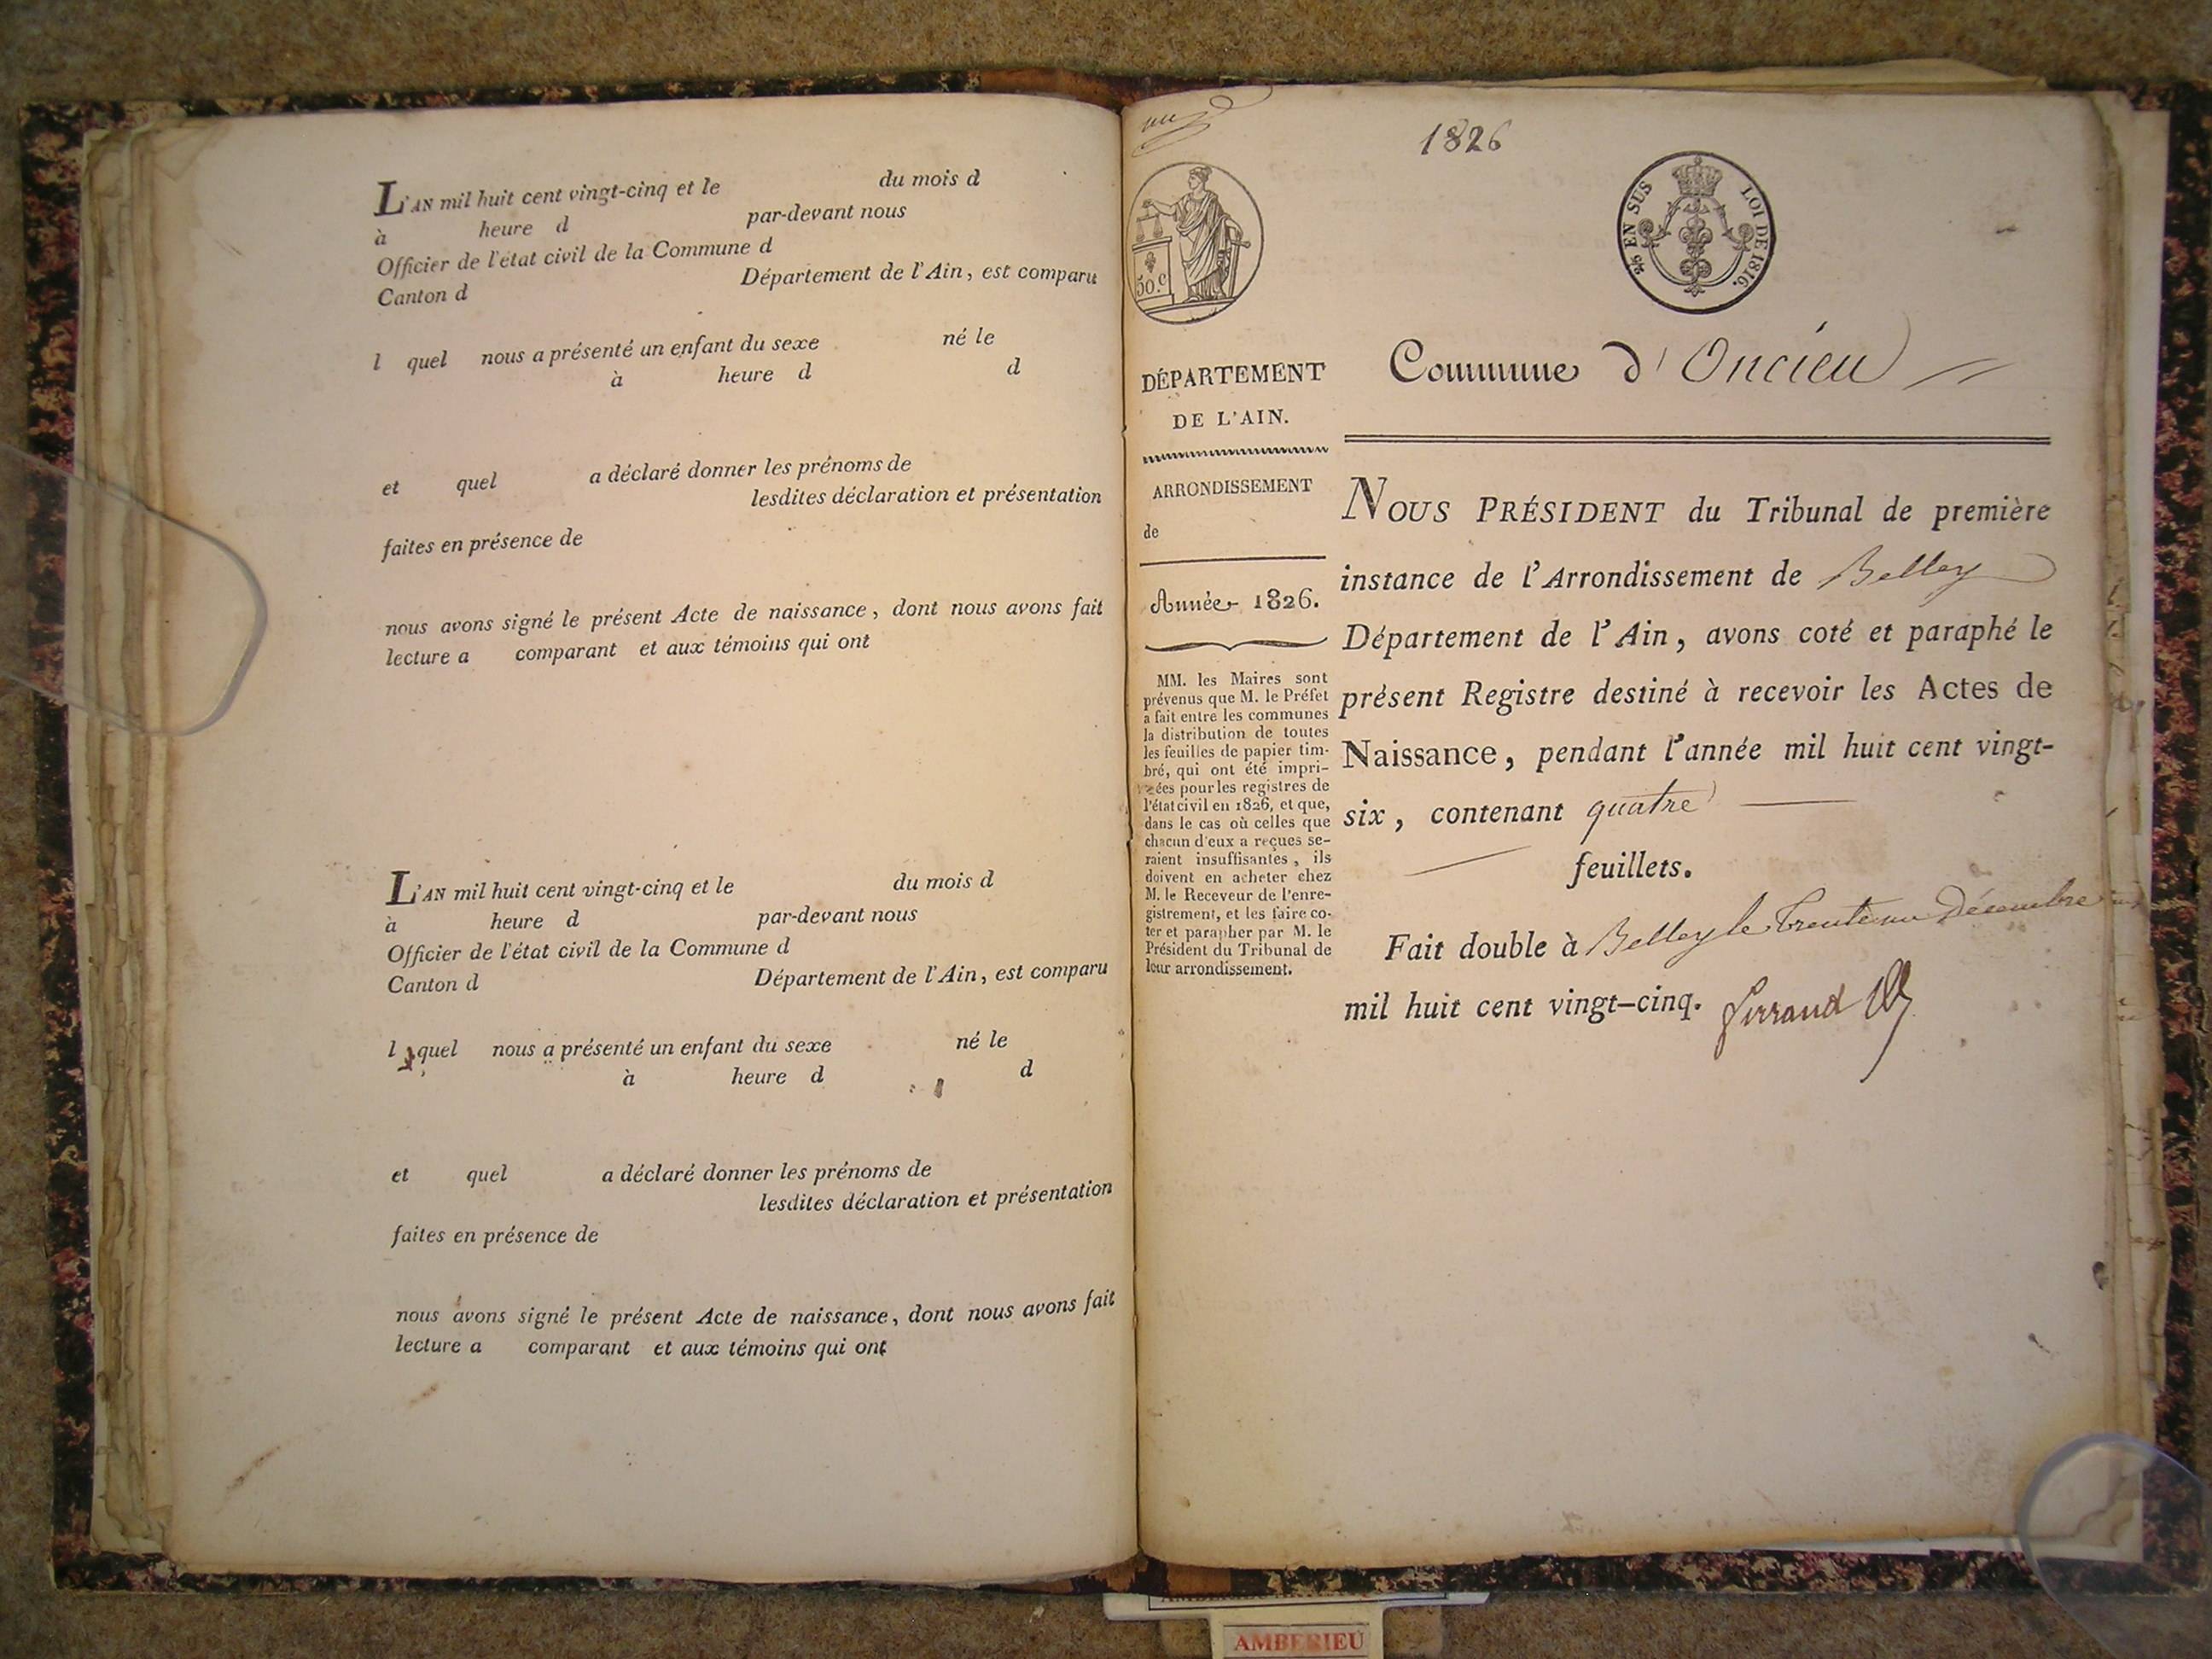 L'AN mil huit cent vingt-cinq et le du mois d
à heure d par-devant nous
Officier de l'état civil de la Commune d
Canton d Département de l'Ain, est comparu
l quel nous a présenté un enfant du sexe né le
à heure d d
et quel a déclaré donner les prénoms de
lesdites déclaration et présentation
faites en présence de
nous avons signé le présent Acte de naissance, dont nous avons fait
lecture a comparant et aux témoins qui ont
L'AN mil huit cent vingt-cinq et le du mois d
à heure d par-devant nous
Officier de l'état civil de la Commune d
Canton d Département de l'Ain, est comparu
l quel nous a présenté un enfant du sexe né le
à heure d d
et quel a déclaré donner les prénoms de
lesdites déclaration et présentation
faites en présence de
nous avons signé le présent Acte de naissance, dont nous avons fait
lecture a comparant et aux témoins qui ont
1826
50.c
EN SUS LOI DE 1816.
DÉPARTEMENT
DE L'AIN.
ARRONDISSEMENT
de
Année 1826.
MM. les Maires sont
prévenus que M. le Préfet
a fait entre les communes
la distribution de toutes
les feuilles de papier tim-
bré, qui ont été impri-
mées pour les registres de
l'état civil en 1826, et que,
dans le cas où celles que
chacun d'eux a reçues se-
raient insuffisantes, ils
doivent en acheter chez
M. le Receveur de l'enre-
gistrement, et les faire co-
ter et parapher par M. le
Président du Tribunal de
leur arrondissement.
Commune d'Oncieu
NOUS PRÉSIDENT du Tribunal de première
instance de l'Arrondissement de Belley
Département de l'Ain, avons coté et paraphé le
présent Registre destiné à recevoir les Actes de
Naissance, pendant l'année mil huit cent vingt-
six, contenant quatre
feuillets.
Fait double à Belley le trente un Décembre
mil huit cent vingt-cinq. Ferrand
AMBERIEU